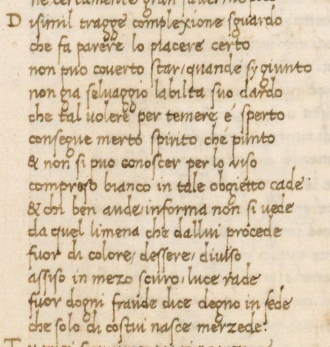 D isimil tragge complexione sguardo
che fa parere lo piacere certo
non puo coverto star/ quande sygiunto
non gia selvaggio labilta suo dardo
che tal volere per temere é sperto
consegue merto spirito che punto
& non si puo conoscer per lo viso
compreso bianco in tale obgietto cade
& chi ben aude/ informa non si vede
da quel limena che dallui procede
fuor di colore/ dessere/ diviso
assiso in mezo scuro/ luce rade
fuor dogni fraude dice degno in fede
che solo di costui nasce merzede: